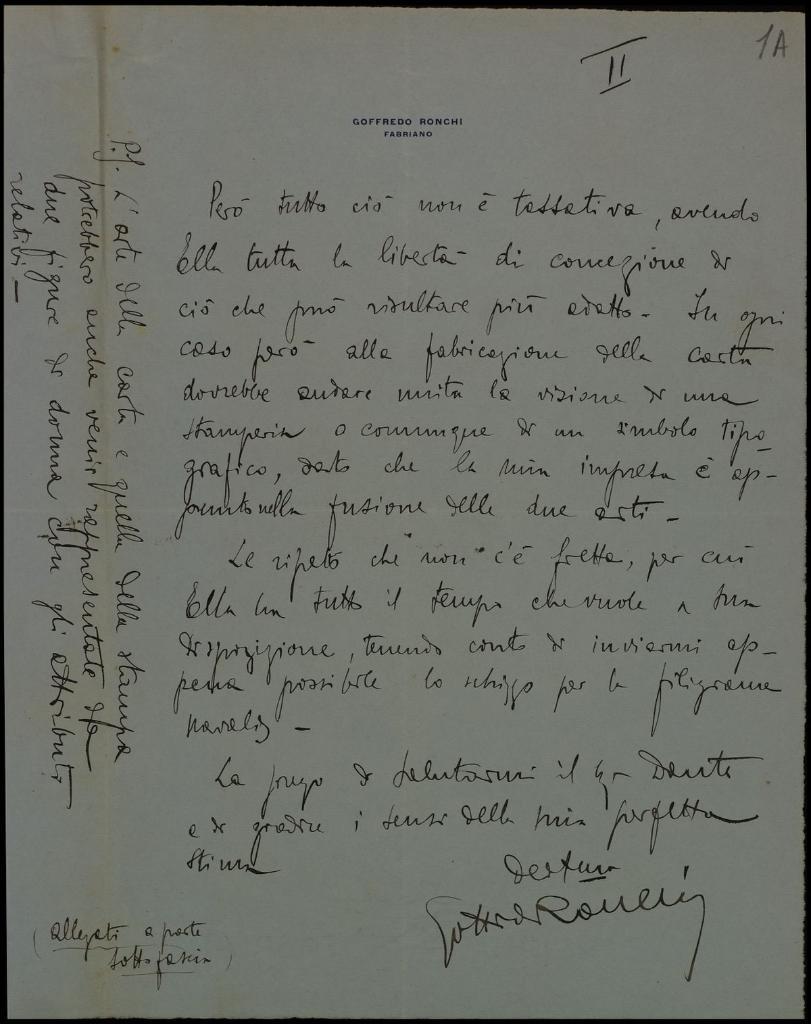 1A
II
GOFFREDO RONCHI
FABRIANO
Però tutto ciò non è tassativa, avendo
Ella tutta la libertà di concezione di
ciò che può risultare più adatto - In ogni
caso però alla fabricazione della carta
dovrebbe andare unita la visione di una
stamperia o comunque di un simbolo tipo-
grafico, dato che la mia impresa è ap-
punto nella fusione delle due arti -
Le ripeto che "non" c'è fretta, per cui
Ella ha tutto il tempo che vuole a sua
disposizione, tenendo conto di inviarmi ap-
pena possibile lo schizzo per la filigrana
navale -
La prego di salutarmi il Sigr Dante
e di gradire i sensi della mia perfetta
stima
Goffredo Ronchi
(allegati a parte
sotto fascia)
P.S. L'arte della carta e quella della stampa
potrebbero anche venir rappresentate da
due figure di donna con gli attributi
relativi -